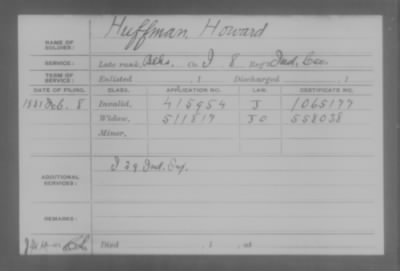 Huffman, Howard
NAME OF SOLDIER:
SERVICE: Late rank, Co. I 8 Reg't Ind. Cav.
TERM OF SERVICE: Enlisted , 1 Discharged , 1
DATE OF FILING. CLASS. APPLICATION NO. LAW. CERTIFICATE NO.
1881 Feb. 8 Invalid, 415954 J 1065177
Widow, 511817 558038
Minor,
ADDITIONAL SERVICES: I 29 Ind. Inf.
REMARKS:
Died , 1 , at